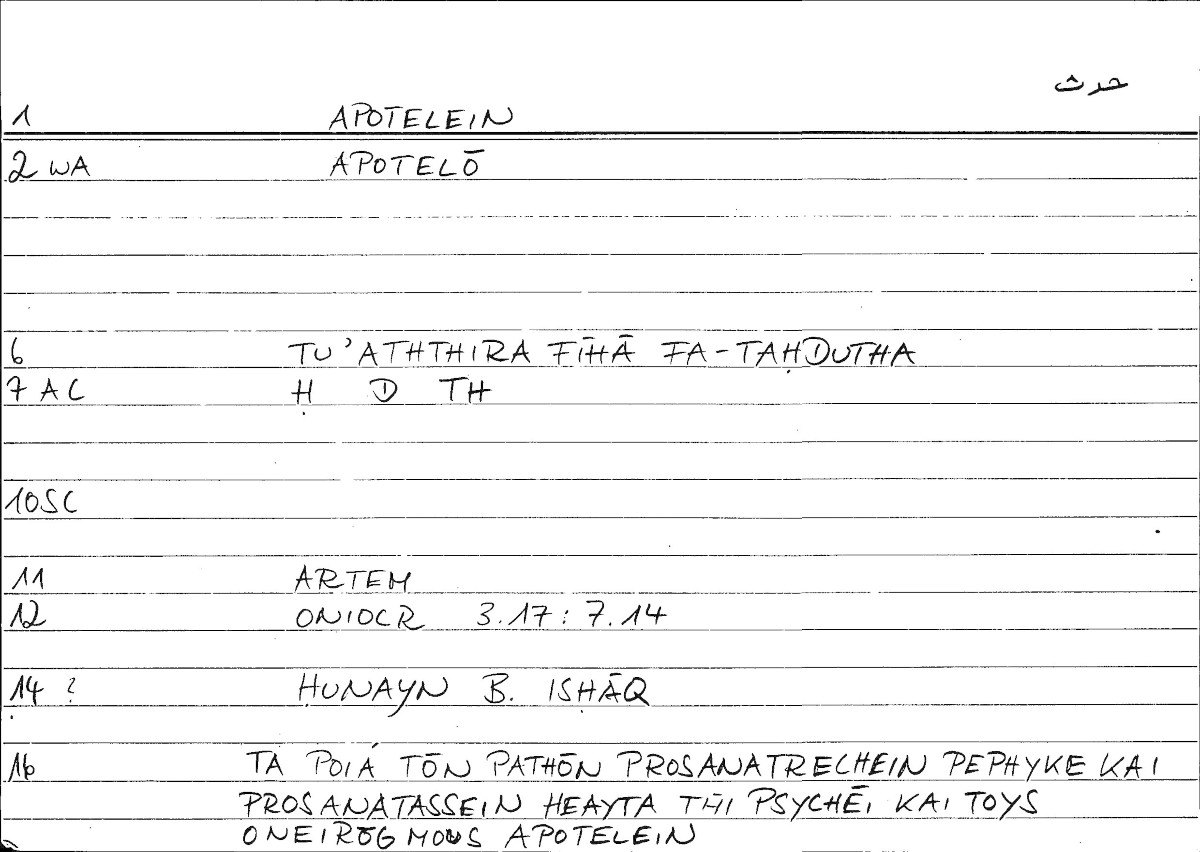 حدث
1 APOTELEIN
2 WA APOTELŌ
6 TU'ATHTHIRA FĪHĀ FA-TAḤDUTHA
7 AC Ḥ D TH
10SC
11 ARTEM
12 ONIOCR 3.17:7.14
14 ? ḤUNAYN B. ISḤĀQ
16 TÀ POIÁ TŌN PATHŌN PROSANATRECHEIN PEPHYKE KAI
PROSANATASSEIN HEAYTA TĒI PSYCHĒI KAI TOYS
ONEIRŌGMOUS APOTELEIN